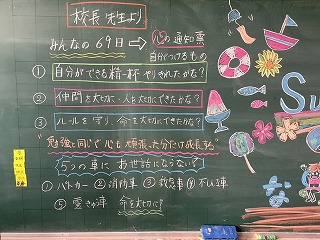 校長先生より
みんなの69日 → 心の通知票
自分でつけるもの
① 自分ができる精一杯やりきれたかな?
② 仲間を大切に・人を大切にできたかな?
③ ルールを守り、命を大切にできたかな?
勉強と同じで心も頑張った分だけ成長する
5つの車に お世話にならない
① パトカー ② 消防車 ③ 救急車 ④ 不しん車
⑤ 霊きゅう車 命を大切に!
Su
な